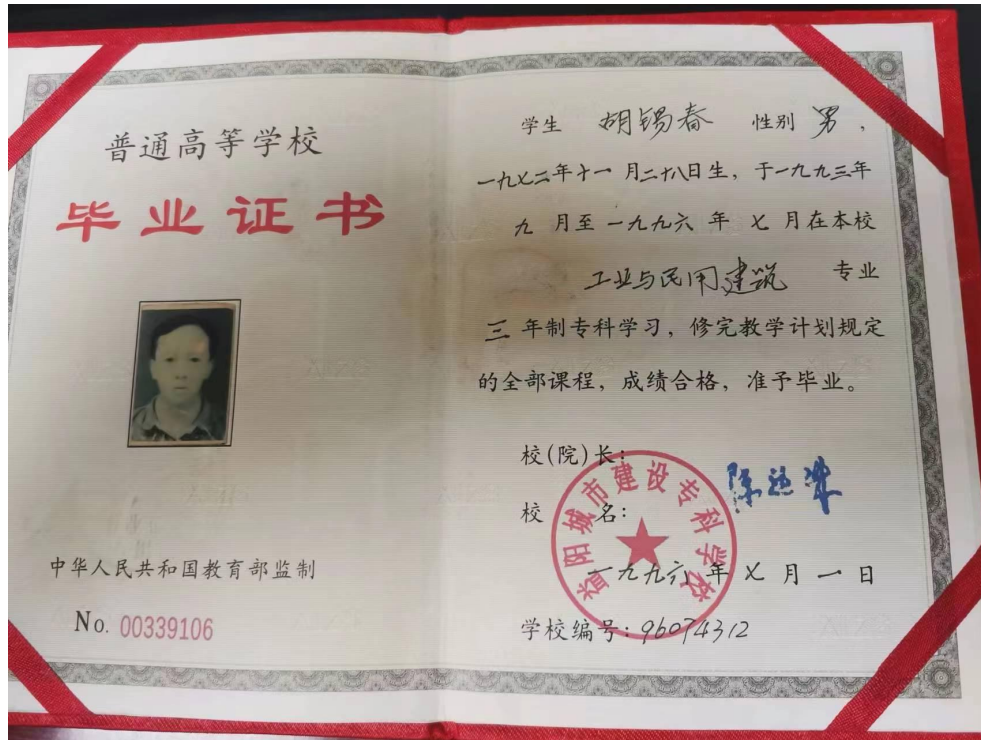 普通高等学校
毕业证书
中华人民共和国教育部监制
No. 00339106
学生 胡锡春 性别 男，
一九七二年十一月二十八日生，于一九九三年
九月至一九九六年七月在本校
工业与民用建筑 专业
三年制专科学习，修完教学计划规定
的全部课程，成绩合格，准予毕业。
校(院)长：
校名：
益阳城市建设专科学校
一九九六年七月一日
学校编号：96074312